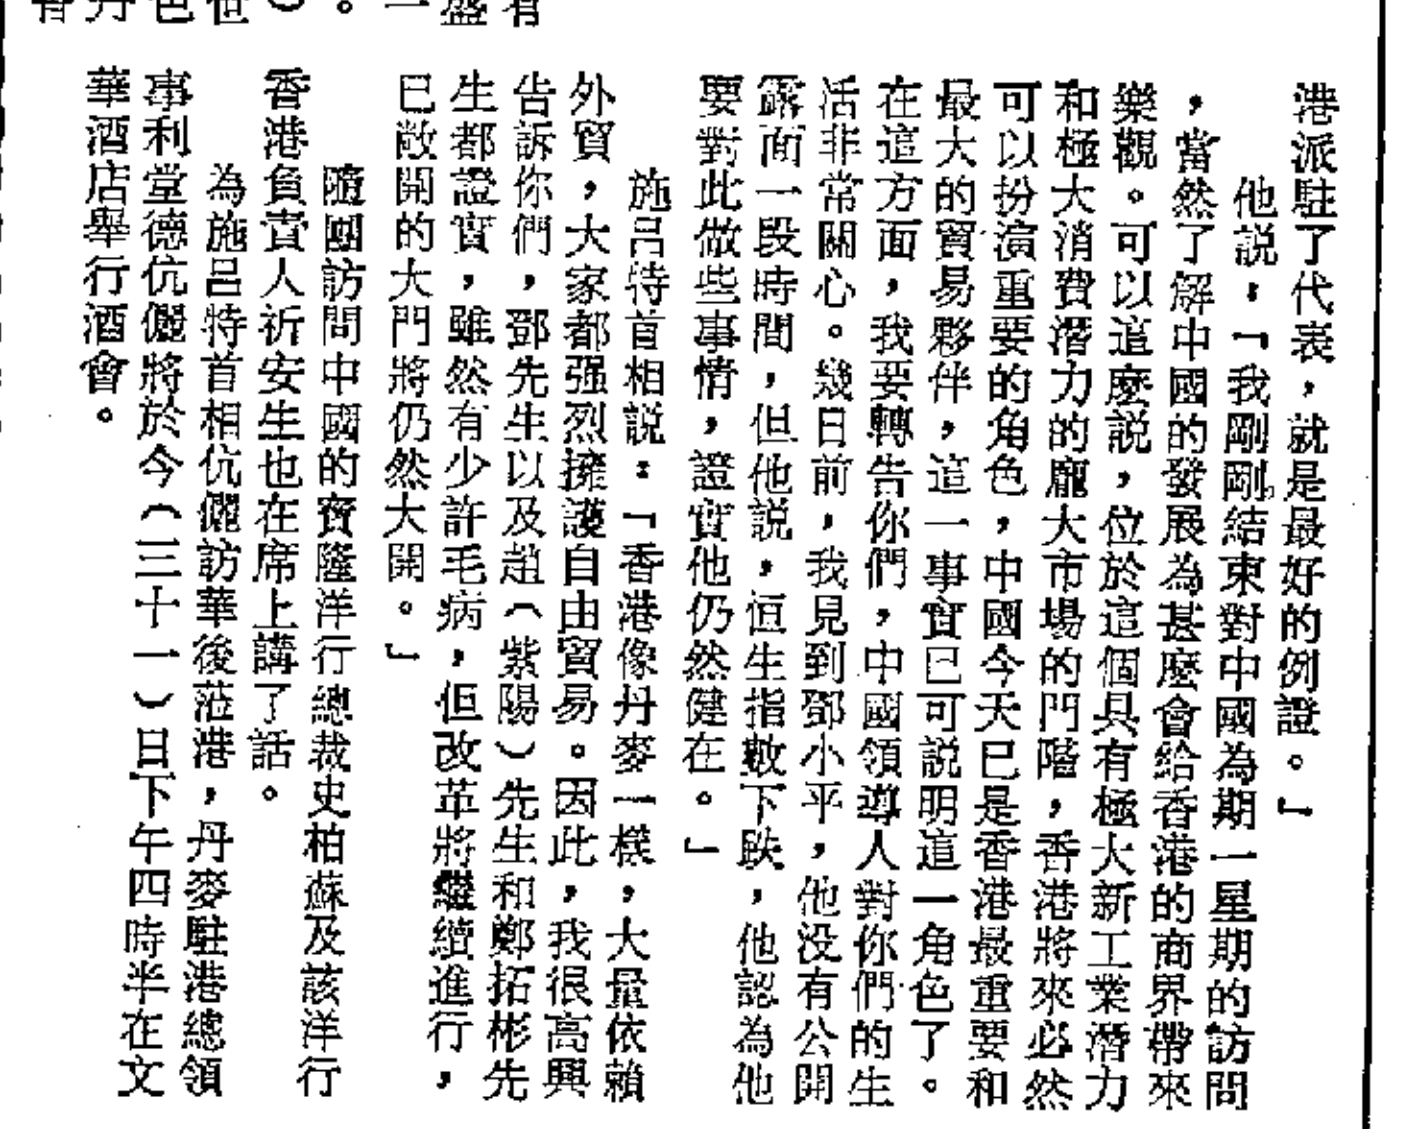 港派駐了代表，就是最好的例證。」
他説，「我剛剛結束對中國為期一星期的訪問
，當然了解中國的發展為甚麼會給香港的商界帶來
樂觀。可以這麼説，位於這個具有極大新工業潛力
和極大消費潛力的龐大市場的門階，香港將來必然
可以扮演重要的角色，中國今天已是香港最重要和
最大的貿易夥伴，這一事實已可説明這一角色了。
在這方面，我要轉告你們，中國領導人對你們的生
活非常關心。幾日前，我見到鄧小平，他没有公開
露面一段時間，但他説，恒生指數下跌，他認為他
要對此做些事情，證實他仍然健在。」
施呂特首相説：「香港像丹麥一樣，大量依賴
外貿，大家都强烈擁護自由貿易。因此，我很高興
告訴你們，鄧先生以及趙（紫陽）先生和鄭拓彬先
生都證實，雖然有少許毛病，但改革將繼續進行，
已敞開的大門將仍然大開。」
隨團訪問中國的寶隆洋行總裁史柏蘇及該洋行
香港負責人祈安生也在席上講了話。
為施呂特首相伉儷訪華後蒞港，丹麥駐港總領
事利堂德伉儷將於今（三十一）日下午四時半在文
華酒店舉行酒會。